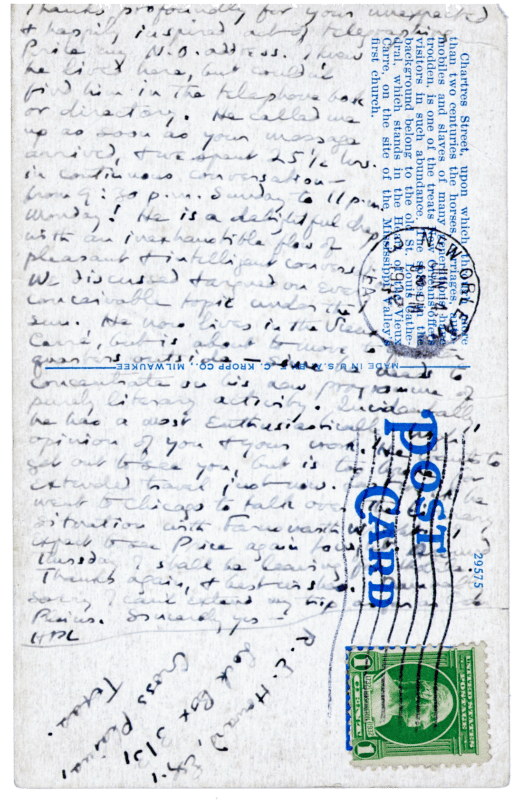 Thanks profoundly for your unexpected
& happily inspired act of telegraphing
Price my N.O. address. I knew
he lived here, but couldn't
find him in the telephone book
or directory. He called me
up as soon as your message
arrived, & we spent 25½ hrs.
in continuous conversation—
from 9:30 p.m. Sunday to 11 p.m.
Monday! He is a delightful chap
with an inexhaustible flow of
pleasant & intelligent
We discussed & argued on every
conceivable topic under the
sun. He now lives in the Vieux
Carré, but is about to move to
quarters outside—
concentrate on his new programme of
purely literary activity. Incidentally,
he has a most enthusiastically high
opinion of you & your work. He to
get out to see you, but is too for
extended travel just now. he
went to Chicago to talk over
situation with Farnsworth
expect to see Price again
Thursday I shall be leaving
Thanks again, & best wishes
sorry I can't extend my trip as
Plains. Sincerely yrs—
HPL
R. E. Howard, Esq.,
Lock Box 313,
Cross Plains,
Texas.
Chartres Street, upon which for more
than two centuries the horses, carriages,
mobiles and slaves of many generations have
trodden, is one of the treats New Orleans offers
visitors in such abundance. The spires in the
background belong to the old St. Louis Cathe-
dral, which stands in the Heart of the Vieux
Carre, on the site of the Mississippi Valley's
first church.
MADE IN U.S.A. BY E. C. KROPP CO., MILWAUKEE
POST CARD
29575
NEW ORLEANS
JUN 14
1932
LA.
UNITED STATES
POSTAGE
1 1